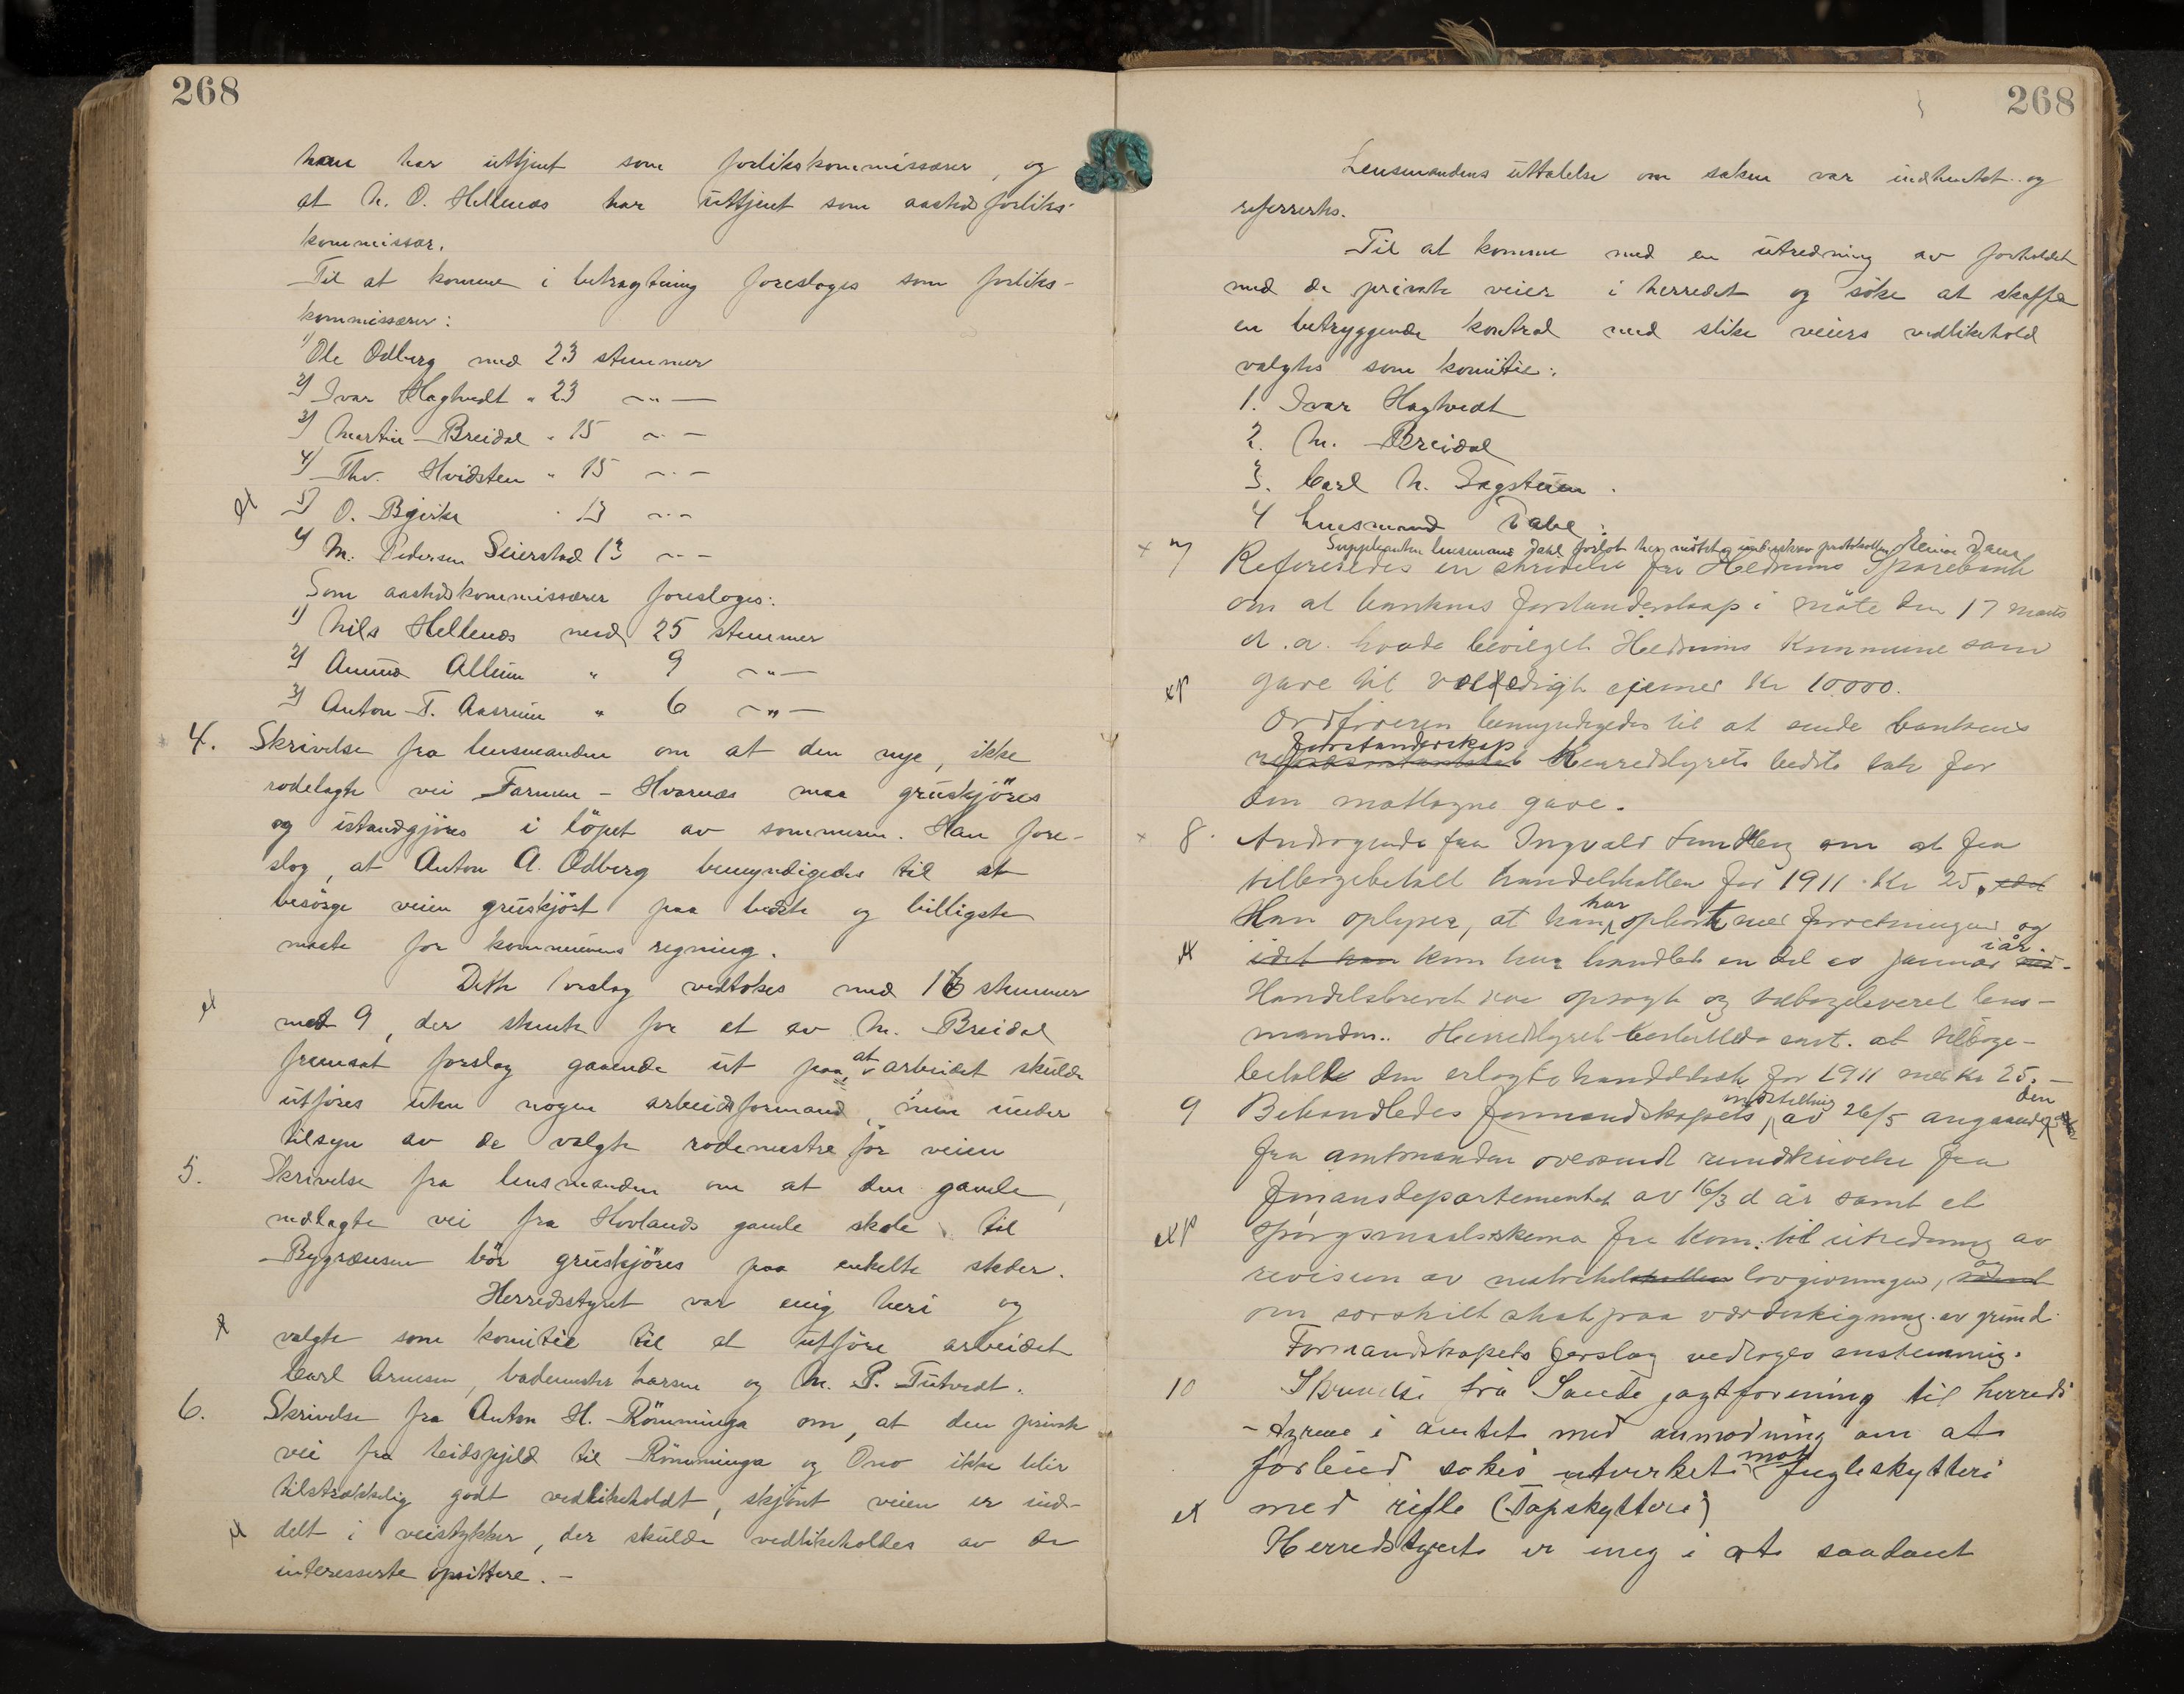 268
han har uttjent som forlikskommissærer, og
at N. O. Hellenes har uttjent som aastedsforliks-
kommissær.
Til at komme i betragtning foresloges som forliks-
kommissærer:
1) Ole Odberg med 23 stemmer
2) Ivar Hagtvedt " 23 -"-
3) Martin Breidal " 15 -"-
4) Thv. Hvidsten " 15 -"-
5) O. Bjerke " 13 -"-
4) M. Pedersen Seierstad 13 -"-
Som aastedskommissærer foresloges:
1) Nils Hellenes med 25 stemmer
2) Amund Allum " 9 -"-
3) Anton T. Aasrum " 6 -"-
4. Skrivelse fra lensmanden om at den nye, ikke
rodelagte vei Farmen - Hvarnes maa gruskjöres
og istandgjöres i löpet av sommeren. Han fore-
slog, at Anton A. Odberg bemyndigedes til at
besörge veien gruskjört paa bedste og billigste
maate for kommunens regning.
Dette forslag vedtokes med 16 stemmer
mot 9, der stemte for et av M. Breidal
fremsat forslag gaaende ut paa, at arbeidet skulde
utföres uten nogen arbeidsformand, men under
tilsyn av de valgte rodemestre for veien
5. Skrivelse fra lensmanden om at den gamle,
nedlagte vei fra Hovlands gamle skole til
Bygrænsen bör gruskjöres paa enkelte steder.
Herredsstyret var enig heri og
valgte som komitée til at utföre arbeidet
Carl Arnesen, bademester Larsen og M. P. Tutvedt.
6. Skrivelse fra Anton H. Römminga om, at den private
vei fra Leidspjeld til Römminga og Ono ikke blir
tilstrækkelig godt vedlikeholdt, skjönt veien er ind-
delt i veistykker, der skulde vedlikeholdes av de
interesserte opsittere. -
268
Lensmandens uttalelse om saken var indhentet og
referertes.
Til at komme med en utredning av forholdet
med de private veier i herredet og söke at skaffe
en betryggende kontrol med slike veiers vedlikehold
valgtes som komitée:
1. Ivar Hagtvedt
2. M. Breidal
3. Carl N. Sagstuen.
4 lensmand Dahl.
Supplianten lensmand Dahl forlot her mötet og underskrev protokollen
× 7 Refereredes en skrivelse fra Hedrums Sparebank
om at bankens forstanderskap i möte den 17 marts
d. a. havde bevilget Hedrums Kommune som
gave til veldedigt öiemed Kr 10000.
Ordföreren bemyndigedes til at sende bankens
forstanderskap Herredstyrets bedste tak for
den mottagne gave.
× 8. Andragende fra Ingvald Lundberg om at faa
tilbagebetalt handelskatten for 1911 Kr 25, idet
Han oplyser, at han har ophört med forretningen og
idet han kun har handlet en del av januar iår.
Handelsbrevet var opsagt og tilbageleveret lens-
manden. Herredstyret besluttede enst. at tilbage-
betale den erlagte handelsskat for 1911 med Kr 25. -
9 Behandledes formandskapets indstilling av 26/5 angaaende den
fra amtmanden oversendt rundskrivelse fra
finansdepartementet av 16/3 d år samt et
spörgsmaalsskema fra Kom. til utredning av
revision av matrikelskatten lovgivningen, og
om særskilt skat paa værdistigning av grund.
Formandskapets forslag vedtoges enstemmig.
10 Skrivelse fra Sande jagtforening til herreds
-styrene i amtet med anmodning om at
forbud sökes utvirket mot fugleskytteri
med rifle (Topskytteri)
Herredstyret er enig i at saadant